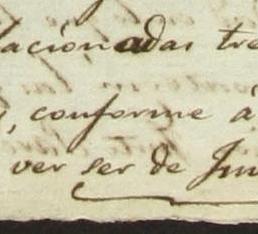 lacionadas tre
, conforme à
ver ser de Jm